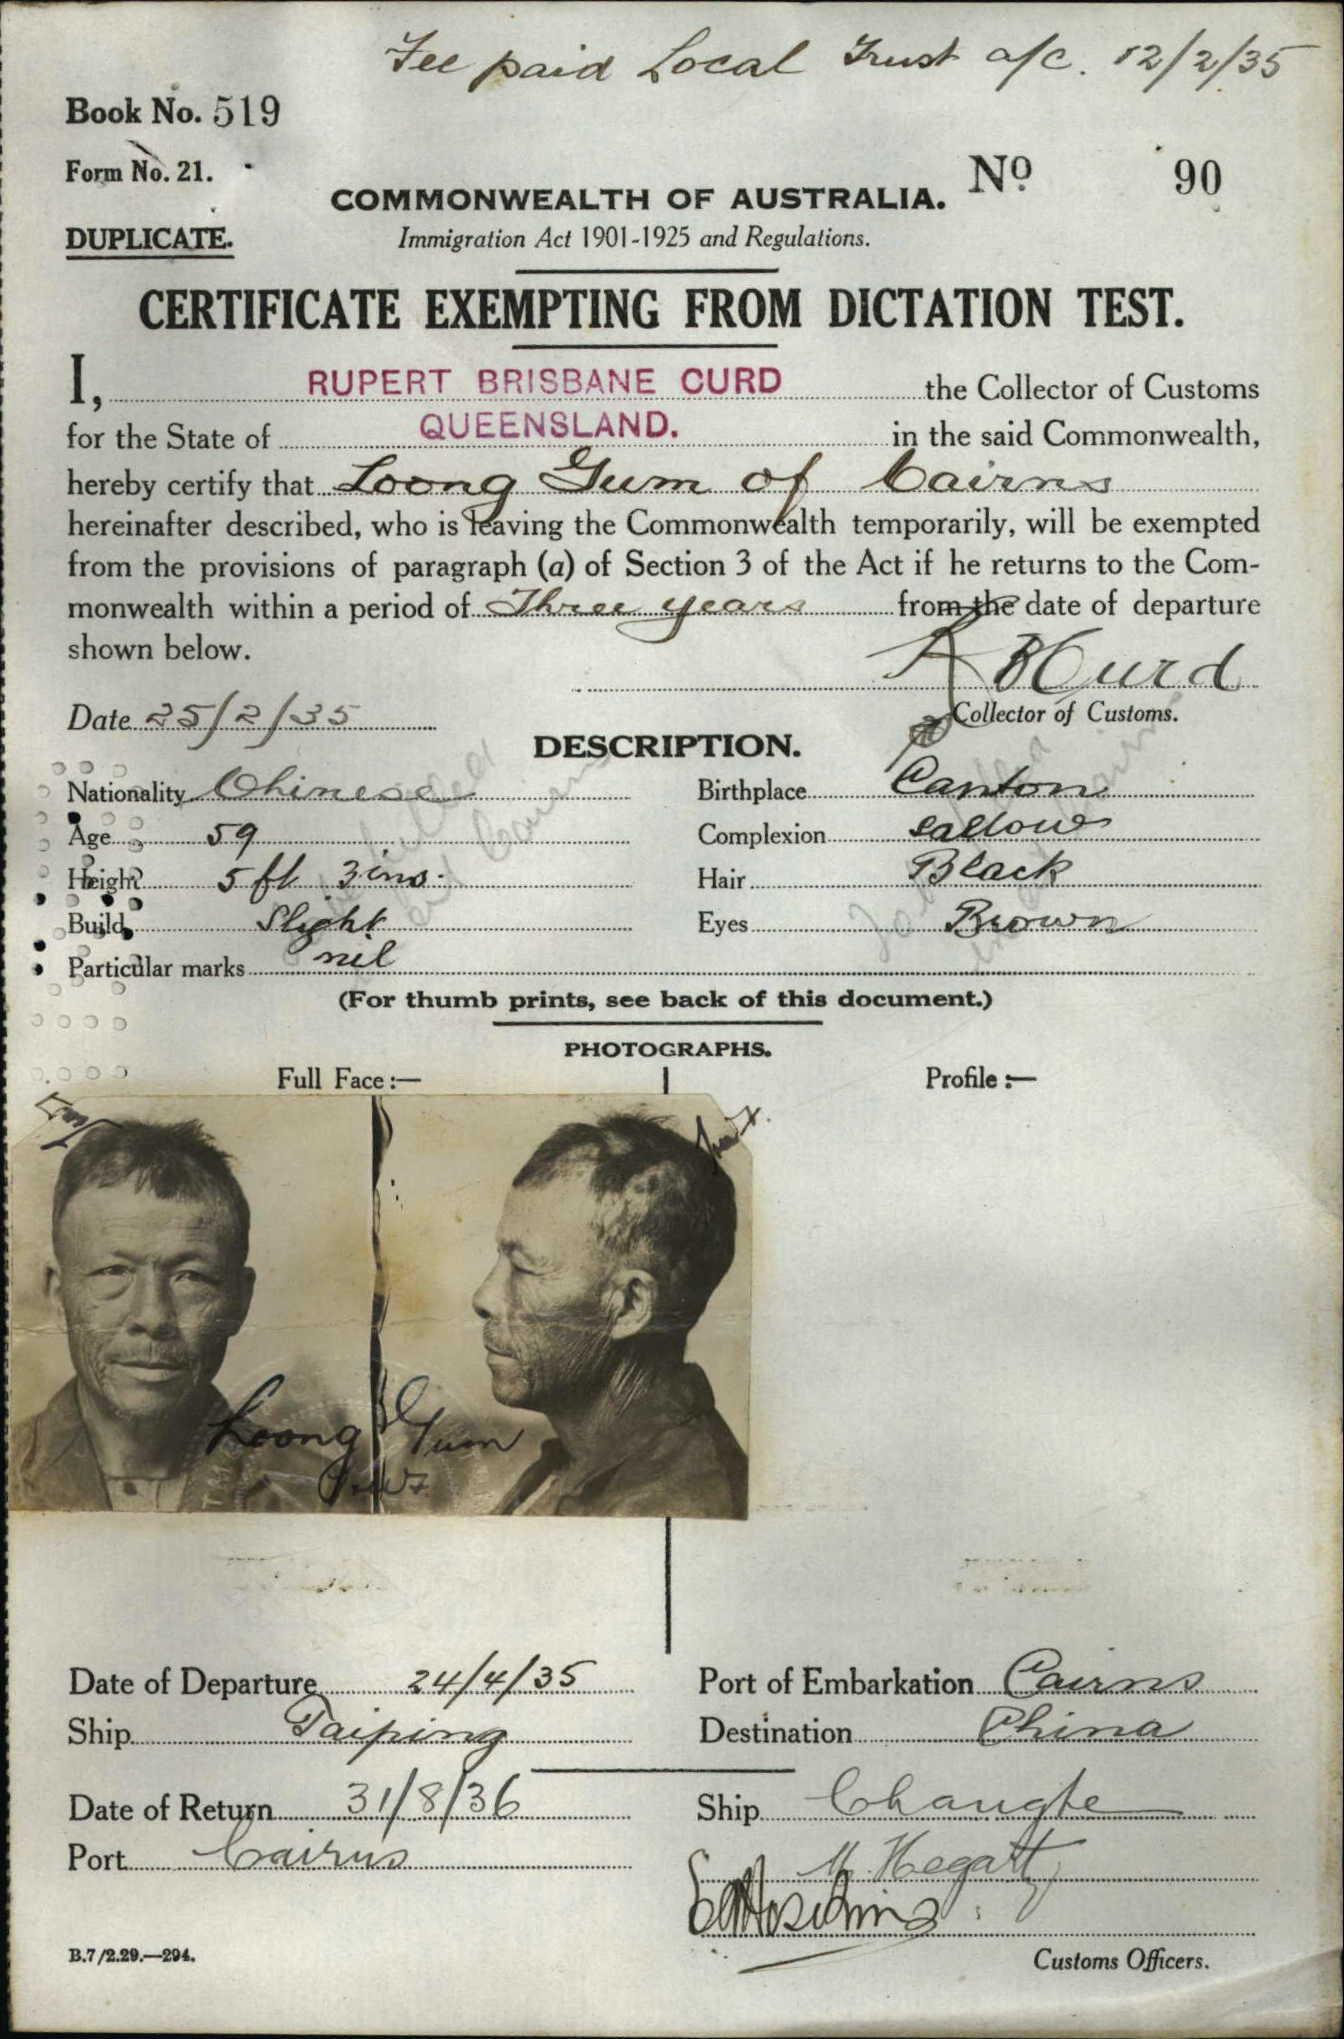 Fee paid Local Trust a/c. 12/2/35
Book No. 519
Form No. 21.
No. 90
COMMONWEALTH OF AUSTRALIA.
DUPLICATE.
Immigration Act 1901-1925 and Regulations.
CERTIFICATE EXEMPTING FROM DICTATION TEST.
I, RUPERT BRISBANE CURD the Collector of Customs
for the State of QUEENSLAND. in the said Commonwealth,
hereby certify that Loong Gum of Cairns
hereinafter described, who is leaving the Commonwealth temporarily, will be exempted
from the provisions of paragraph (a) of Section 3 of the Act if he returns to the Com-
monwealth within a period of Three years from the date of departure
shown below.
R B Curd
Date 25/2/35
Collector of Customs.
DESCRIPTION.
Nationality Chinese
Birthplace Canton
Age 59
Complexion Sallow
Height 5 ft 3 ins.
Hair Black
Build Slight
Eyes Brown
Particular marks nil
(For thumb prints, see back of this document.)
PHOTOGRAPHS.
Full Face:—
Profile:—
Loong Gum
Date of Departure 24/4/35
Port of Embarkation Cairns
Ship Taiping
Destination China
Date of Return 31/8/36
Ship Changte
Port Cairns
M. Hegarty
B.7/2.29.—294.
Customs Officers.